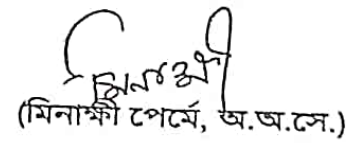 মিনাক্ষী
(মিনাক্ষী পেৰ্মে, অ.অ.সে.)